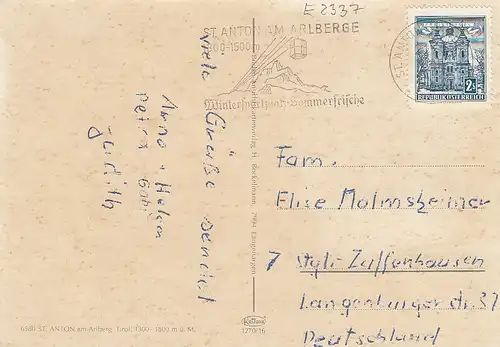 E 2337
ST. ANTON AM ARLBERGE
1300-1500m
Wintersportplatz-Sommerfrische
ST. ANTON
2S
REPUBLIK ÖSTERREICH
viele Grüße sendet
Anna + Helga
Petra Gabi
Judith
Fam.
Elise Malmsheimer
7 Stgt-Zuffenhausen
Langenburger str. 37
Deutschland
6580 ST. ANTON am Arlberg, Tirol, 1300 - 1800 m ü. M.
1270/16